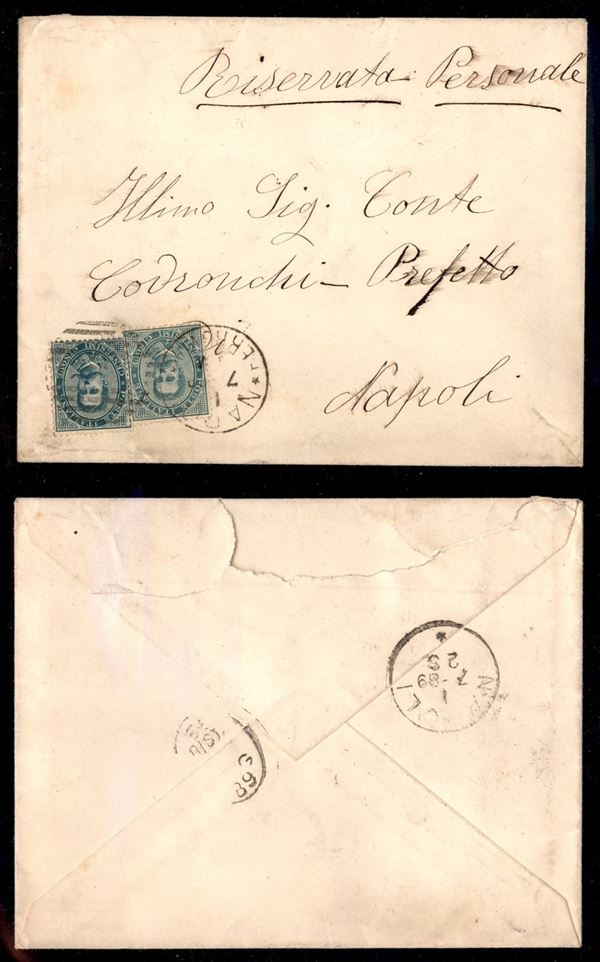 Riserrata Personale
Illmo Sig. Conte
Codronchi - Prefetto
Napoli
FERR
7
1
* NAP
NAPOLI
1
7-89
2S
*